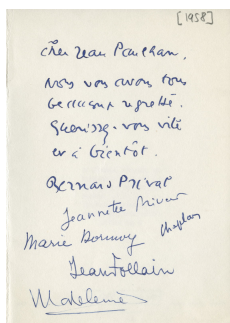 [1958]
cher Jean Paulhan,
Nous vous avons tous
beaucoup regretté.
Guérissez-vous vite
et à bientôt.
Bernard Privat
Jeannette Privat
Marie Dormoy
Jean Follain